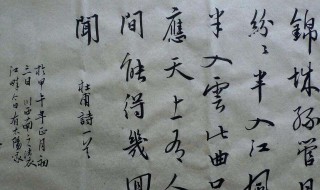 錦城絲管日
紛〻半入江風
半入雲此曲
應天上有人
間能得幾回
聞
杜甫詩一首
於甲午年正月初
三日
江畔今日有太陽